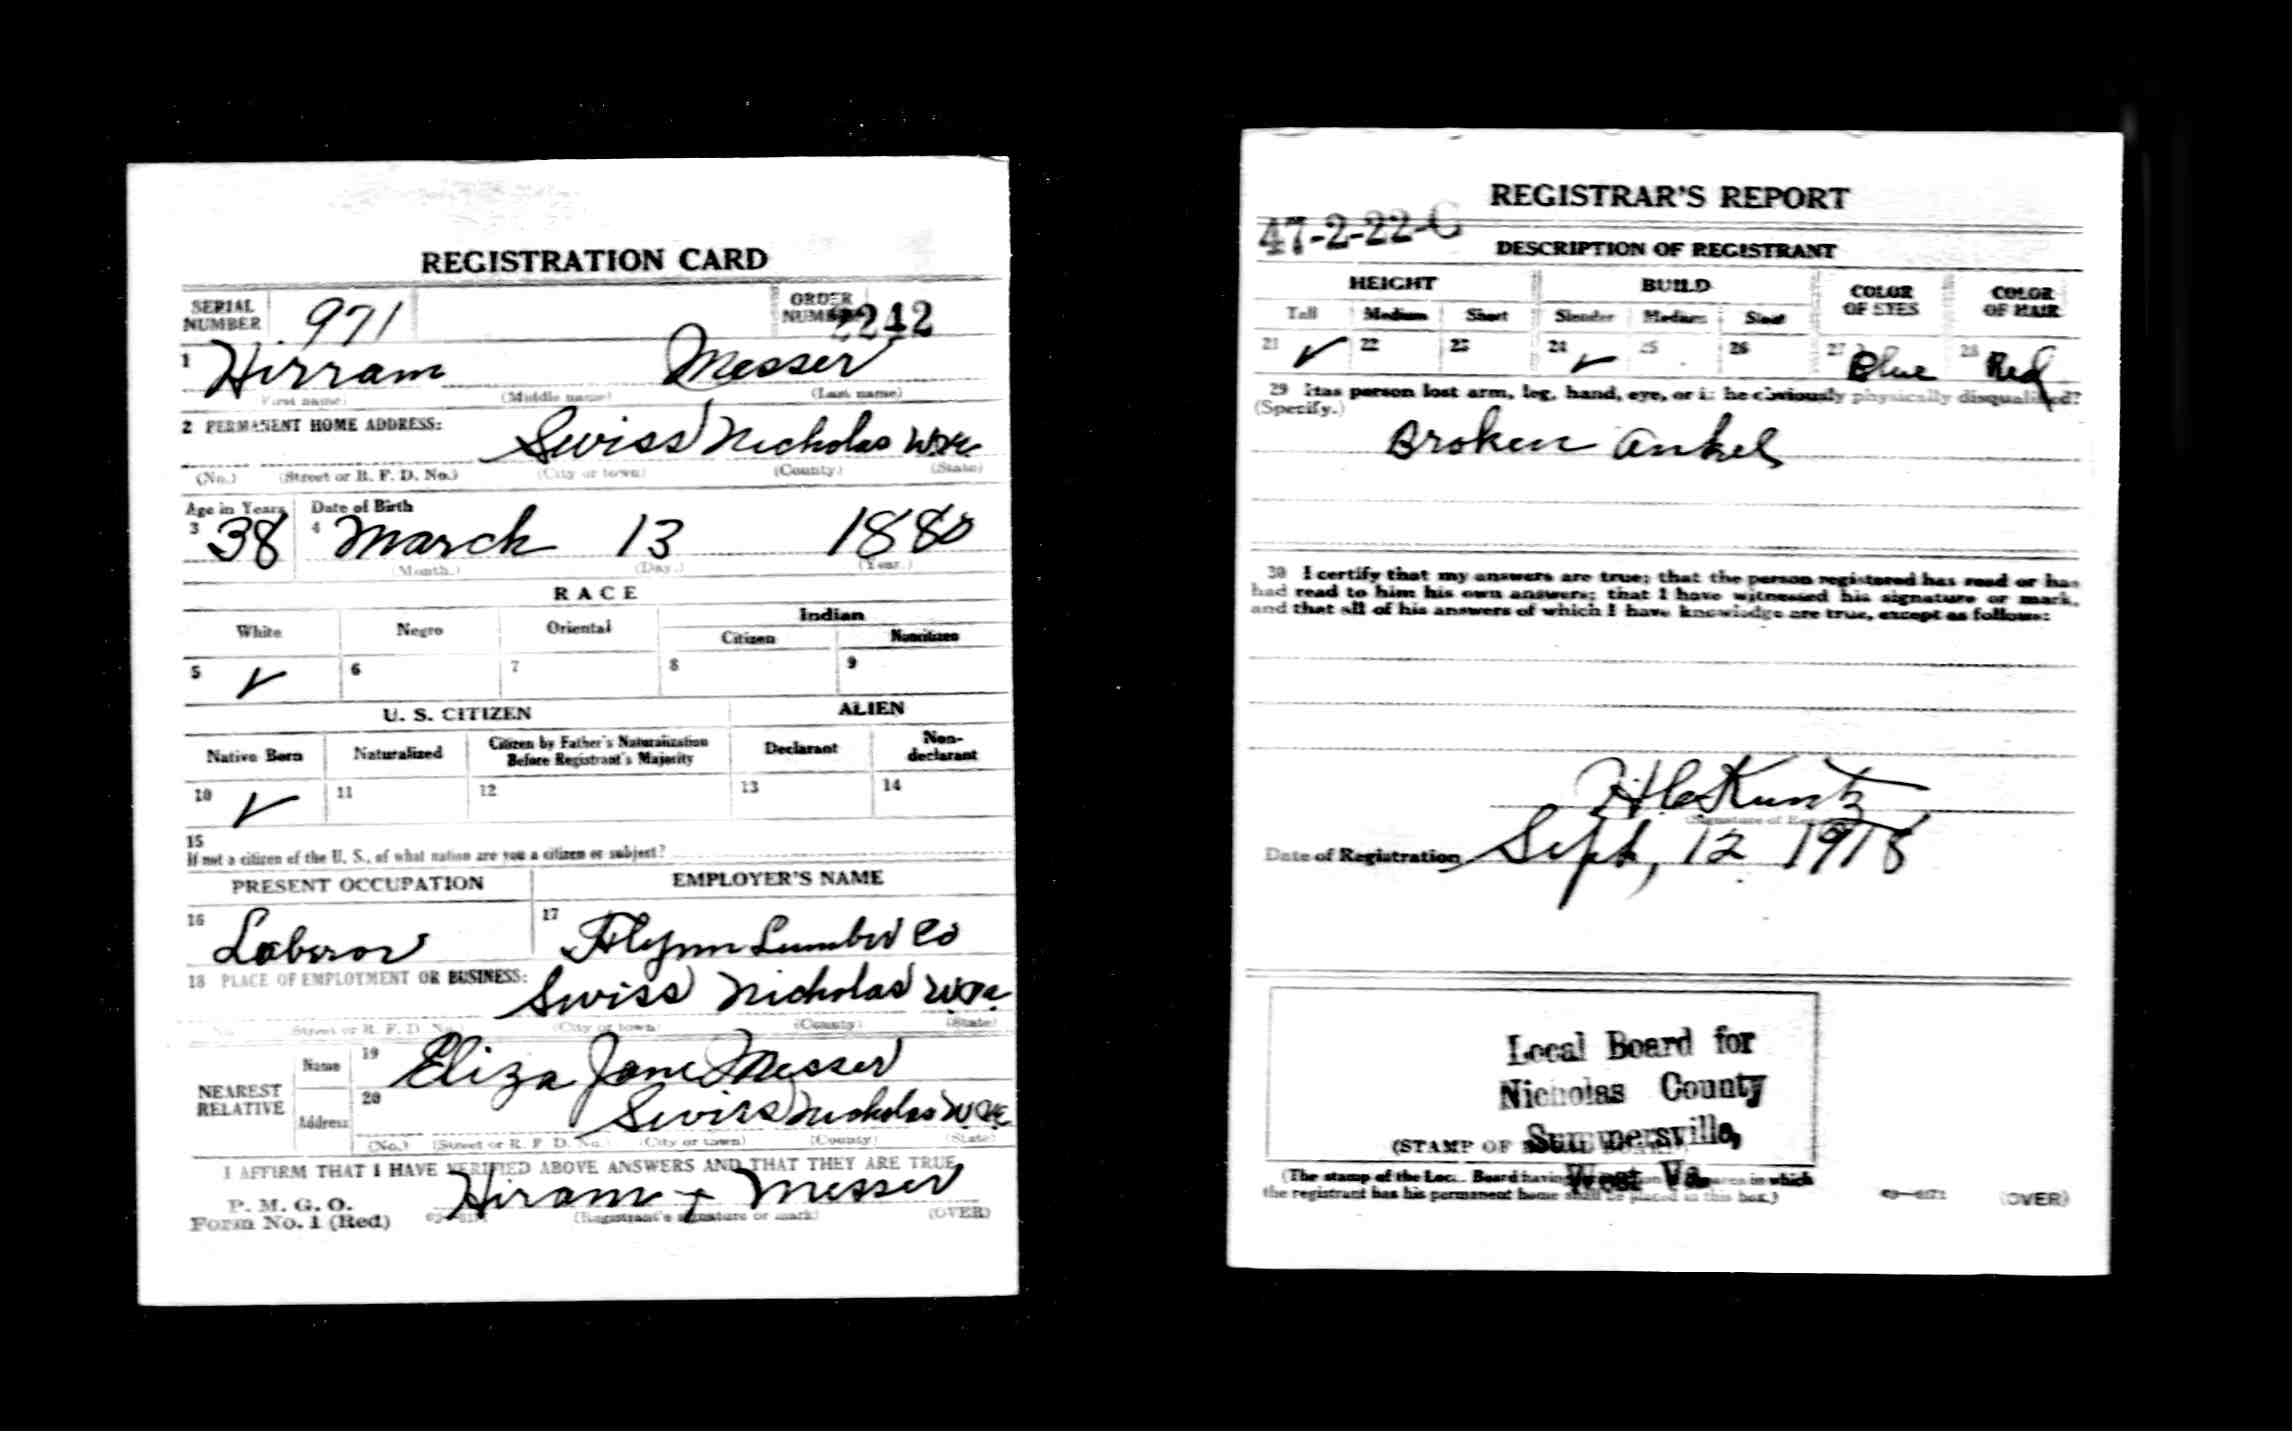 REGISTRATION CARD
SERIAL NUMBER 971 ORDER NUMBER 2242
1 Hirram Messer
(First name) (Middle name) (Last name)
2 PERMANENT HOME ADDRESS:
Swiss Nicholas W Va
(No.) (Street or R. F. D. No.) (City or town) (County) (State)
Age in Years Date of Birth
3 38 4 March 13 1880
(Month.) (Day.) (Year.)
RACE
White Negro Oriental Indian
Citizen Noncitizen
5 ✓ 6 7 8 9
U. S. CITIZEN ALIEN
Native Born Naturalized Citizen by Father's Naturalization Before Registrant's Majority Declarant Non-declarant
10 ✓ 11 12 13 14
15
If not a citizen of the U. S., of what nation are you a citizen or subject?
PRESENT OCCUPATION EMPLOYER'S NAME
16 Laboror 17 Flynn Lumber Co
18 PLACE OF EMPLOYMENT OR BUSINESS:
Swiss Nicholas W Va
(No.) (Street or R. F. D. No.) (City or town) (County) (State)
NEAREST RELATIVE
Name 19 Eliza Jane Messer
Address 20 Swiss Nicholas W Va
(No.) (Street or R. F. D. No.) (City or town) (County) (State)
I AFFIRM THAT I HAVE VERIFIED ABOVE ANSWERS AND THAT THEY ARE TRUE
P. M. G. O.
Form No. 1 (Red) Hiram + Messer
(Registrant's signature or mark) (OVER)
REGISTRAR'S REPORT
47-2-22-C
DESCRIPTION OF REGISTRANT
HEIGHT BUILD COLOR OF EYES COLOR OF HAIR
Tall Medium Short Slender Medium Stout
21 ✓ 22 23 24 ✓ 25 26 27 Blue 28 Red
29 Has person lost arm, leg, hand, eye, or is he obviously physically disqualified?
(Specify.)
Broken Ankel
30 I certify that my answers are true; that the person registered has read or has
had read to him his own answers; that I have witnessed his signature or mark,
and that all of his answers of which I have knowledge are true, except as follows:
Kuntz
(Signature of
Date of Registration Sept, 12 1918
Local Board for
Nicholas County
Summersville,
West Va.
(STAMP OF LOCAL BOARD)
(The stamp of the Local Board having jurisdiction of the area in which
the registrant has his permanent home shall be placed in this box.)
(OVER)